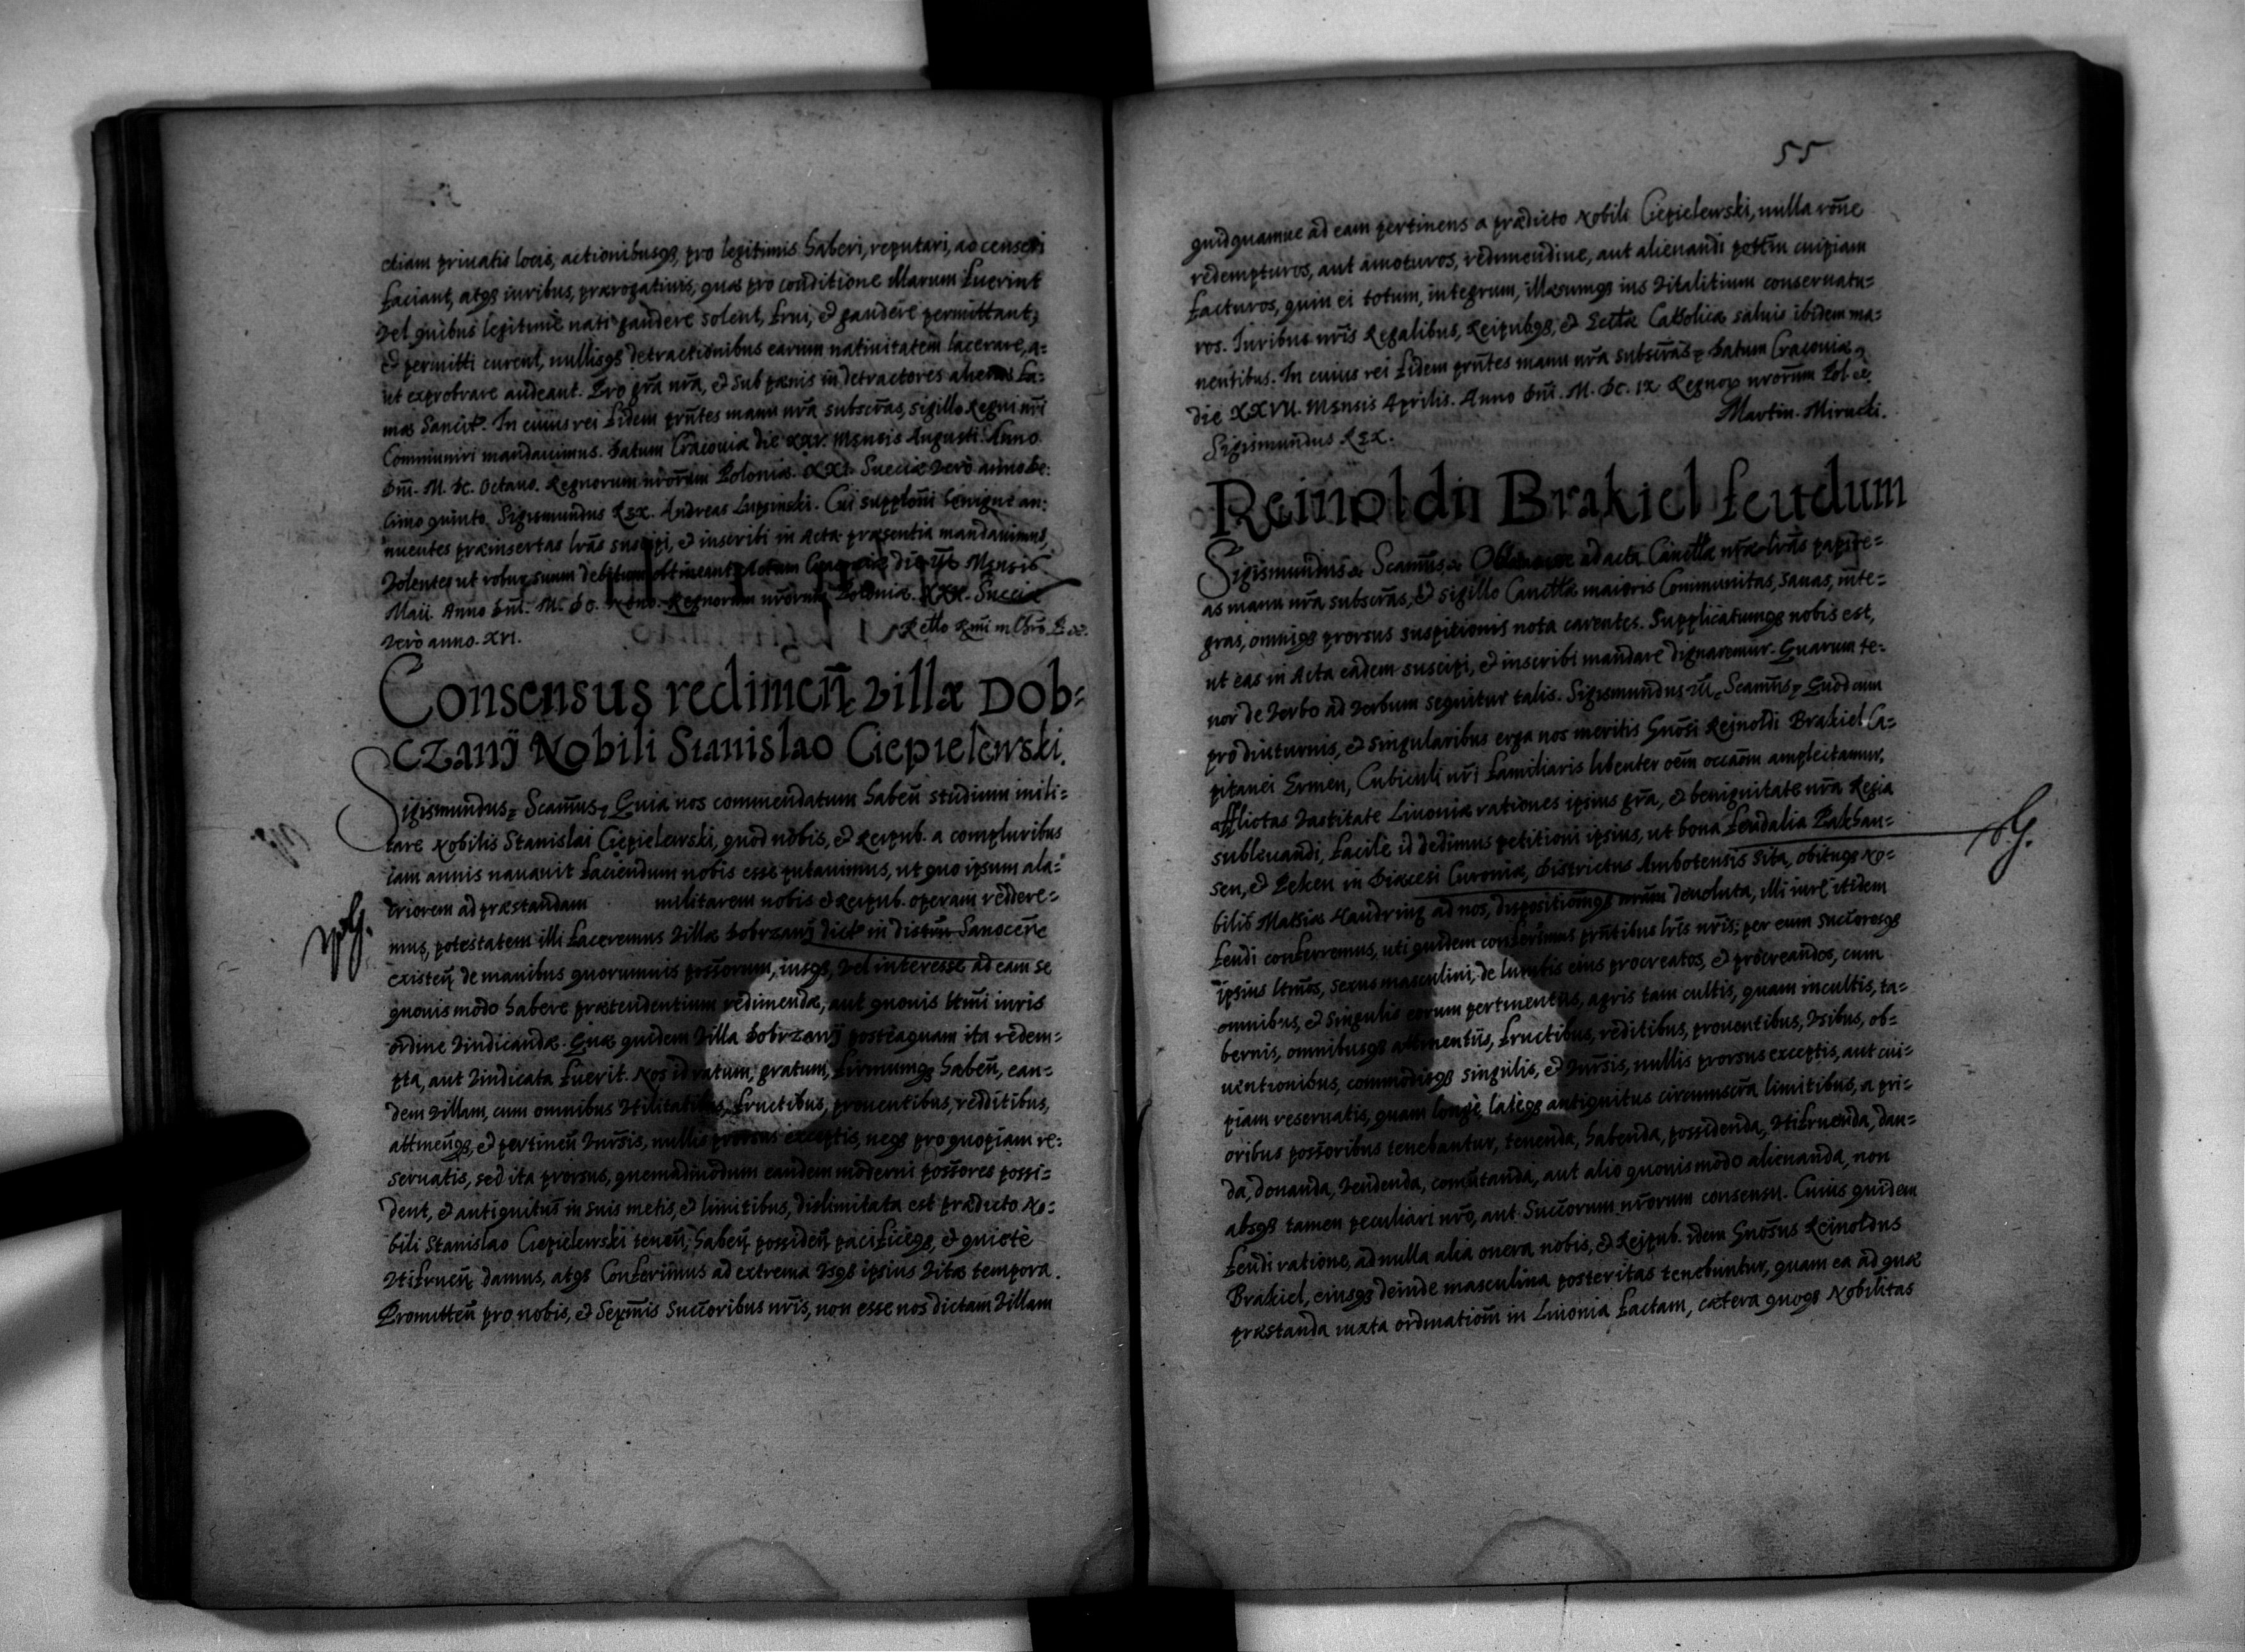 etiam priuatis locis, actionibusq3, pro legitimis haberi, reputari, ac censeri
faciant, atq3 iuribus, prærogatiuis, quæ pro conditione illarum fuerint
vel quibus legitimè nati gaudere solent, frui, et gaudere permittant,
et permitti curent, nullisq3 detractionibus earum natiuitatem lacerare, a=
ut exprobrare audeant. Pro gra nra, et sub pænis in detractores alienæ fa=
mæ Sancit. In cuius rei fidem pntes manu nra subscras, sigillo Regni nri
Communiri mandauimus. Datum Cracouiæ die XXV. Mensis Augusti. Anno
Dni. M. Dc. Octauo. Regnorum nrorum Poloniæ. XXI. Sueciæ verò anno de:
cimo quinto. Sigismundus Rex. Andreas Lipsinski. Cui supplōni benignè an:
nuentes præinsertas lras suscipi, et inscribi in Acta præsentia mandauimus,
Volentes ut robur suum debitum obtineant. Actum Cracouiæ die Mensis
Maii. Anno Dni. M. Dc. Nono. Regnorum nrorum Poloniæ. XXII. Sueciæ
verò anno. XVI.
Rello Rmi in Chro P. &.
Consensus redimen villæ Dob=
czanÿ Nobili Stanislao Ciepielewski.
Sigismundus, Scamus, Quia nos commendatum haben studium mili=
tare Nobilis Stanislai Ciepielewski, quod nobis, et Reipub. a compluribus
iam annis nauauit faciendum nobis esse putauimus, ut quo ipsum ala=
criorem ad præstandam militarem nobis et Reipub. operam reddere=
mus, potestatem illi faceremus villæ Dobrzanÿ dictæ in distru Sanocene
existen de manibus quorumuis possorum, iusq3, vel interesse ad eam se
quouis modo habere prætendentium redimendæ, aut quouis ltmi iuris
ordine vindicandæ. Quæ quidem villa Dobrzanÿ posteaquam ita redem=
pta, aut vindicata fuerit. Nos id ratum, gratum, firmumq3 haben, ean=
dem villam, cum omnibus vtilitatibus, fructibus, prouentibus, redditibus,
attinenq3, et pertinen vnirsis, nullis prorsus exceptis, neq3 pro quopiam re=
seruatis, sed ita prorsus, quemadmodum eandem moderni possores possi=
dent, et antiquitus in suis metis, et limitibus, dislimitata est prædicto No=
bili Stanislao Ciepielewski tenen, haben possiden pacificèq3, et quietè
vtifruen damus, atq3 Conferimus ad extrema vsq3 ipsius vitæ tempora.
Promitten pro nobis, et Sermis Succoribus nris, non esse nos dictam villam
55
quidquamue ad eam pertinens a prædicto Nobili Ciepielewski, nulla rone
redempturos, aut amoturos, redimendiue, aut alienandi pottm cuipiam
facturos, quin ei totum, integrum, illæsumq3 ius vitalitium conseruatu=
ros. Iuribus nris Regalibus, Reipubq3, et Ecclæ Catholicæ saluis ibidem ma=
nentibus. In cuius rei fidem pntes manu nra subscras, Datum Cracouiæ,
die XXVII. Mensis Aprilis. Anno Dni. M. Dc. IX Regnor nrorum Pol &
Sigismundus Rex.
Martin. Mirucki.
Reinoldii Brakiel feudum
Sigismundus & Scamus, & ad acta Cancellæ nræ lras papire=
as manu nra subscras, et sigillo Cancllæ maioris Communitas, sanas, inte=
gras, omniq3 prorsus suspitionis nota carentes. Supplicatumq3 nobis est,
ut eas in Acta eadem suscipi, et inscribi mandare dignaremur. Quarum te=
nor de verbo ad verbum sequitur talis. Sigismundus III, Scamus, Quod cum
pro diuturnis, et singularibus erga nos meritis Gnosi Rejnoldi Brakiel Ca=
pitanei Ermen, Cubiculi nri familiaris libenter oem occaōm amplectamur,
afflictas vastitate Liuoniæ rationes ipsius gra, et benignitate nra Regia
subleuandi, facilè id dedimus petitioni ipsius, ut bona feudalia Zakhan=
sen, et Peken in Diæcesi Curoniæ, districtus Ambotensis sita, obituq3 No=
bilis Mathiæ Haudring ad nos, dispositiōmq3 nram deuoluta, illi iure itidem
feudi conferremus, uti quidem conferimus pntibus lris nris; per eum Succoresq3
ipsius ltmos, sexus masculini, de lumbis eius procreatos, et procreandos, cum
omnibus, et singulis eorum pertinentiis, agris tam cultis, quam incultis, ta=
bernis, omnibusq3 attinentiis, fructibus, reditibus, prouentibus, vsibus, ob=
uentionibus, commodisq3 singulis, et vnirsis, nullis prorsus exceptis, aut cui=
piam reseruatis, quam longè, latèq3 antiquitus circumscra limitibus, a pri=
oribus possoribus tenebantur, tenenda, habenda, possidenda, vtifruenda, dan=
da, donanda, vendenda, comutanda, aut alio quouis modo alienanda, non
absq3 tamen peculiari nro, aut Succorum nrorum consensu. Cuius quidem
feudi ratione, ad nulla alia onera nobis, et Reipub. idem Gnosus Reinoldus
Brakiel, eiusq3 deinde masculina posteritas tenebuntur, quam ea ad quæ
præstanda iuxta ordinatiom in Liuonia factam, cætera quoq3 Nobilitas